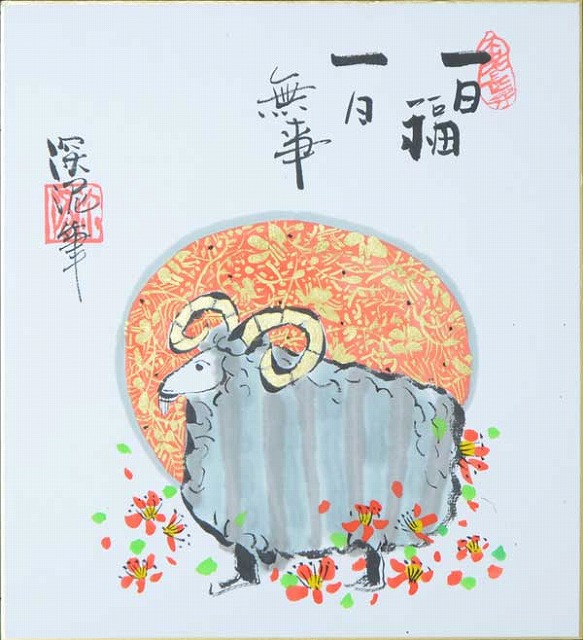 一日
福
一月
無事
深泥筆